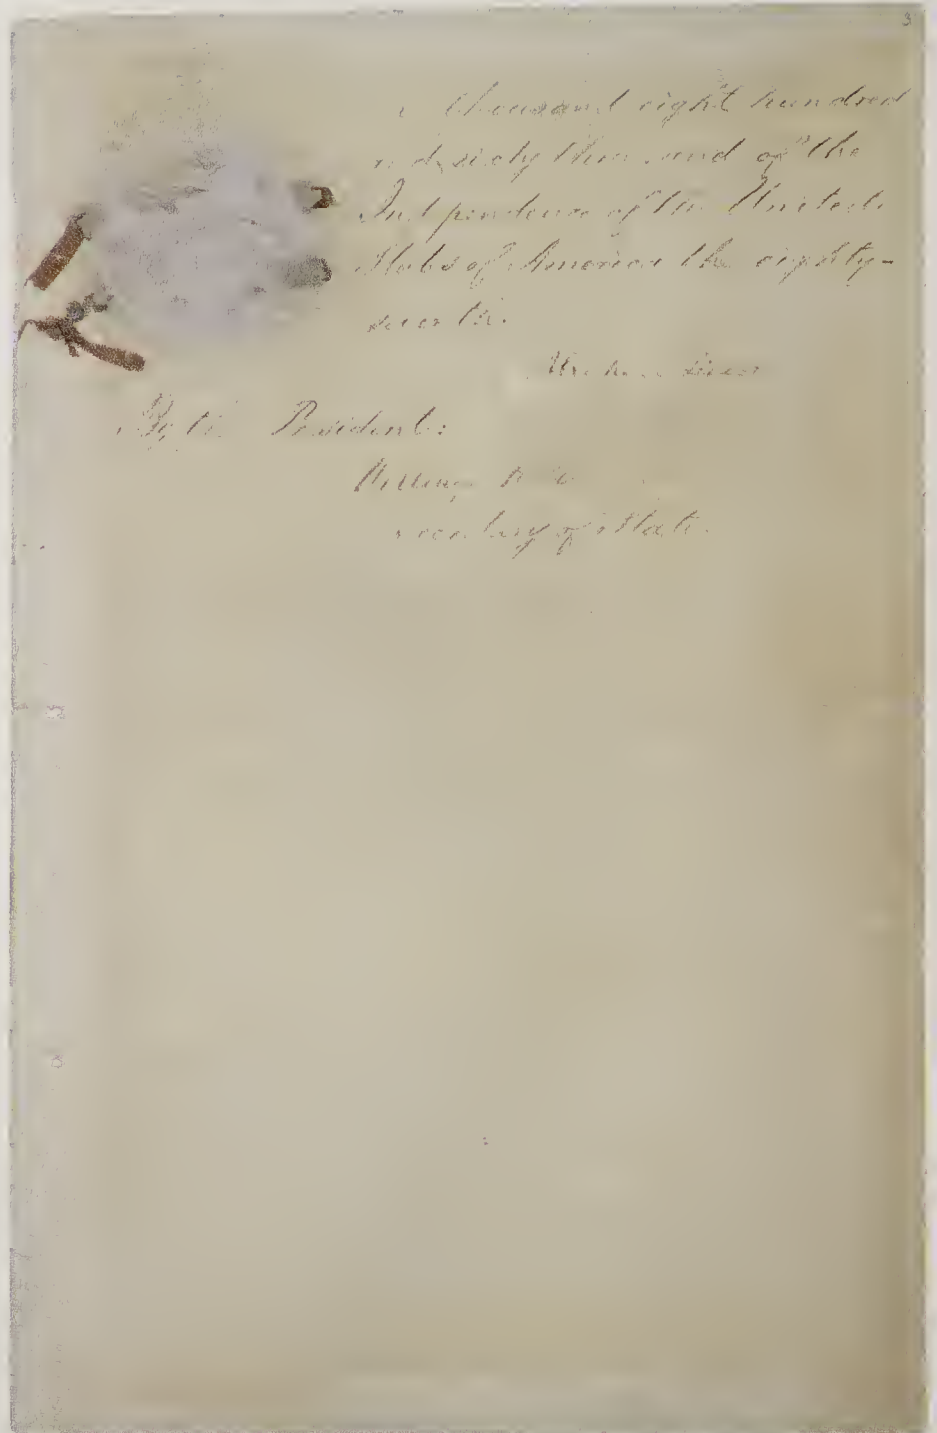 3
thousand eight hundred
and sixty three and of the
Independence of the United
States of America the eighty-
seventh.
By the President:
Secretary of State.